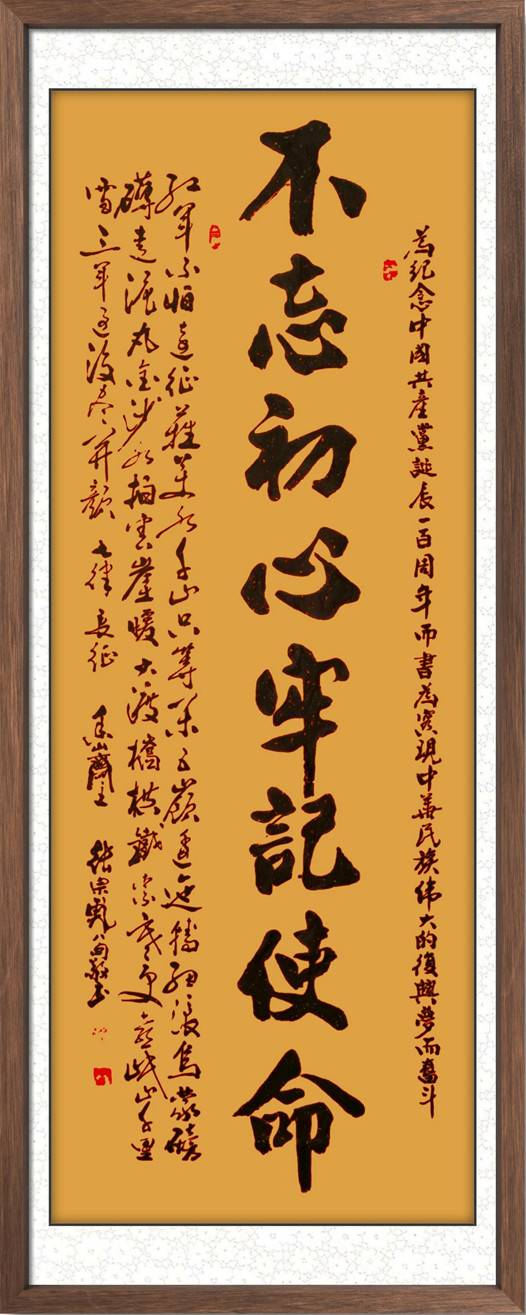 為紀念中國共產黨誕辰一百周年而書為實現中華民族偉大的復興夢而奮斗
不忘初心牢記使命
红軍不怕遠征難萬水千山只等闲五嶺逶迤腾细浪烏蒙磅
礴走泥丸金沙水拍雲崖暖大渡橋横鐵索寒更喜岷山千里
雪三軍過後尽開顏 七律 長征 山齋主 張宗